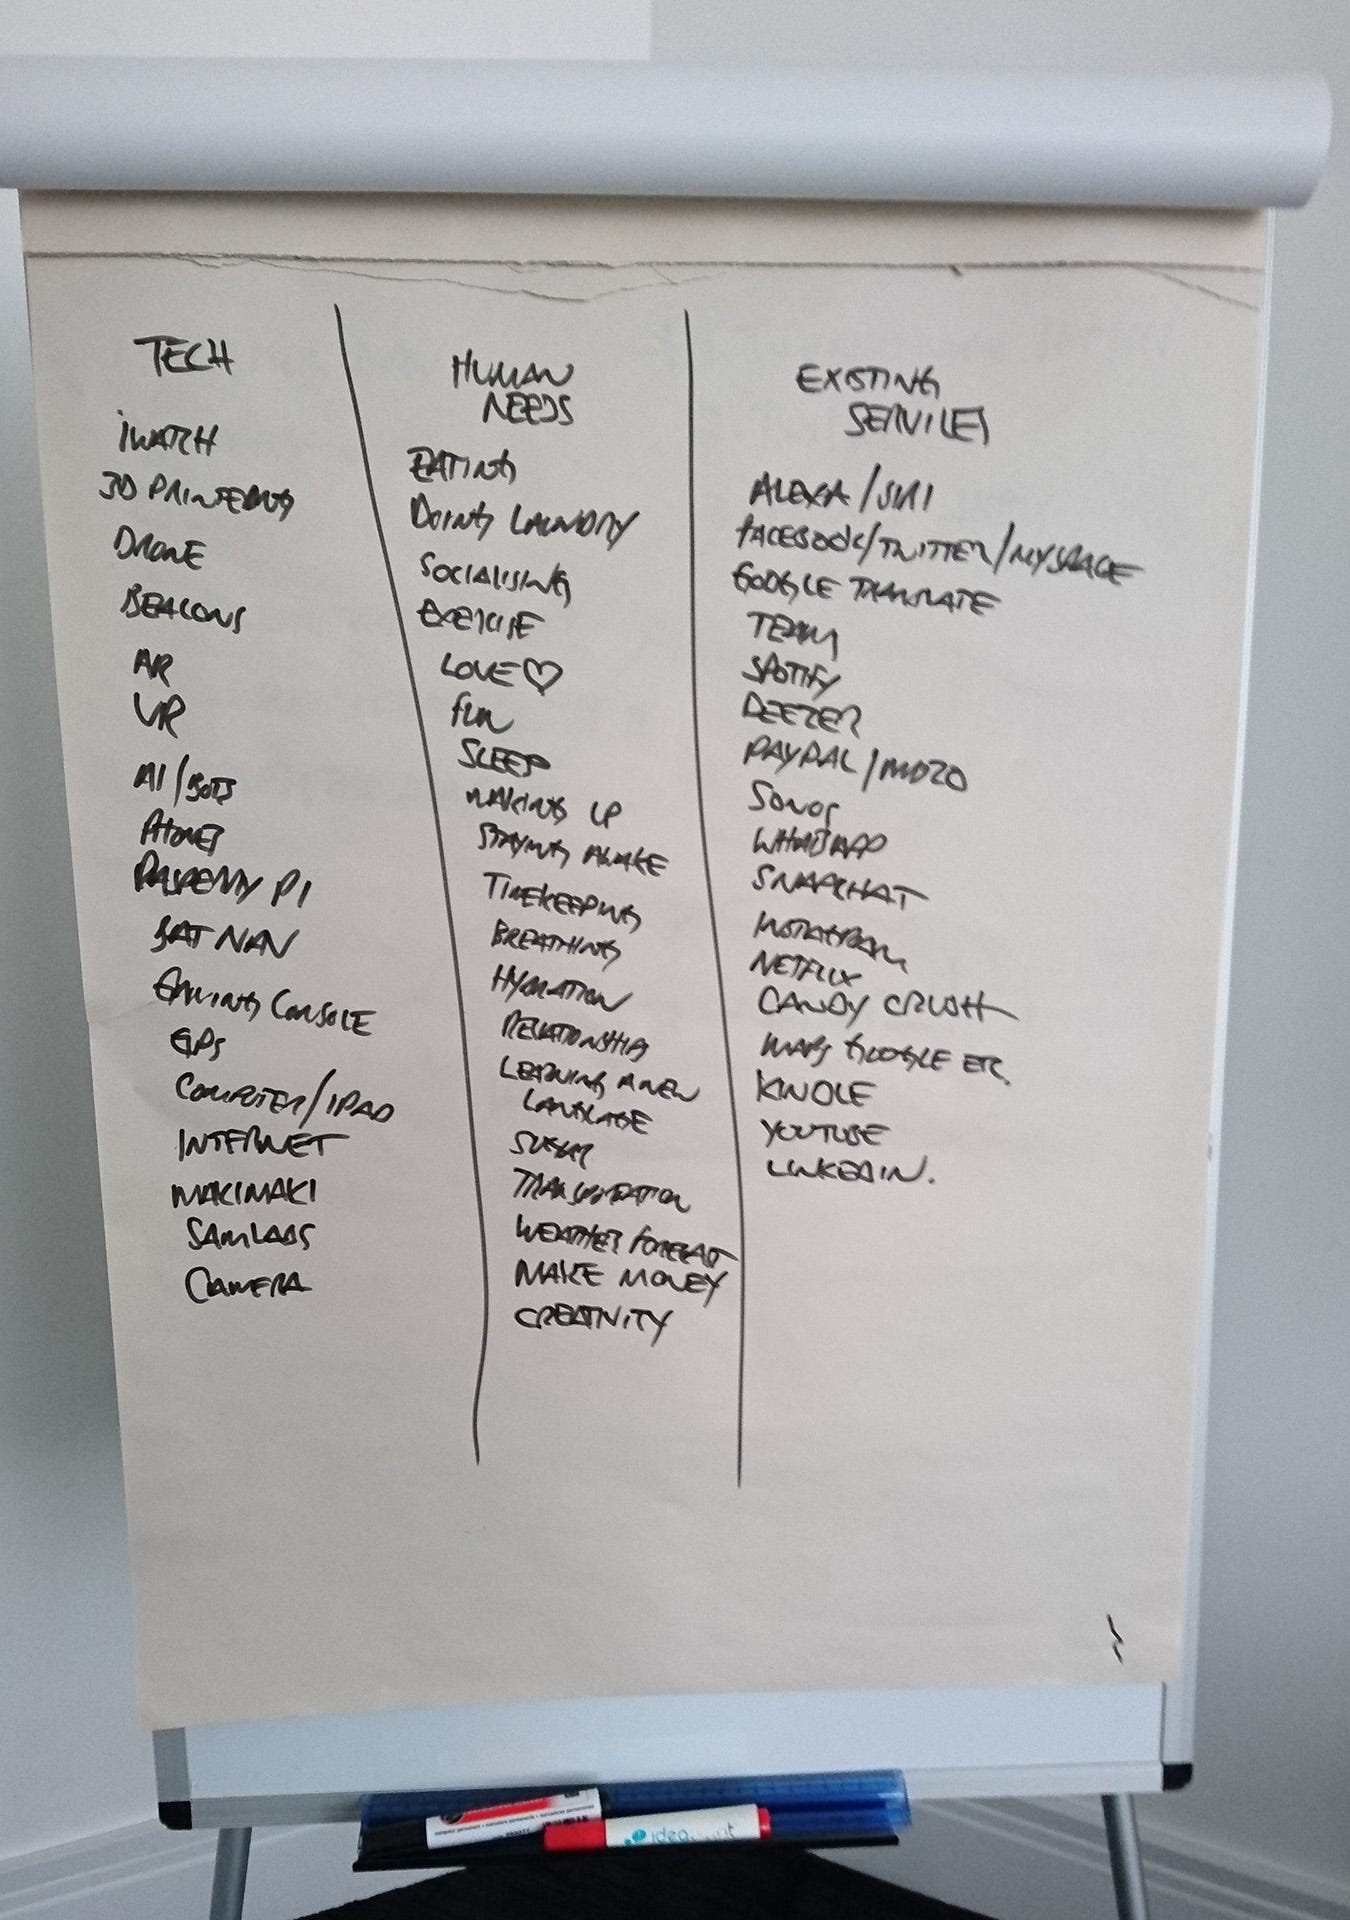 TECH
iWATCH
3D PRINTERING
DRONE
BEACONS
AR
VR
AI/BOTS
PHONES
RASPERRY PI
BAT NAN
GAMING CONSOLE
GPS
COMPUTER/IPAD
INTERNET
MAKIMAKI
SAMLABS
CAMERA
HUMAN
NEEDS
EATING
DOING LAUNDRY
SOCIALISING
EXERCISE
LOVE ♡
FUN
SLEEP
WAKING UP
STAYING AWAKE
TIMEKEEPING
BREATHING
HYDRATION
RELATIONSHIPS
LEARNING A NEW
LANGUAGE
SUGAR
TRANSPORTATION
WEATHER FORECAST
MAKE MONEY
CREATIVITY
EXISTING
SERVICES
ALEXA/SIRI
FACEBOOK/TWITTER/MYSPACE
GOOGLE TRANSLATE
TEAM
SPOTIFY
DEEZER
PAYPAL/MOZO
SONOS
WHATSAPP
SNAPCHAT
INSTAGRAM
NETFLIX
CANDY CRUSH
MAPS GOOGLE ETC.
KINDLE
YOUTUBE
LINKEDIN.